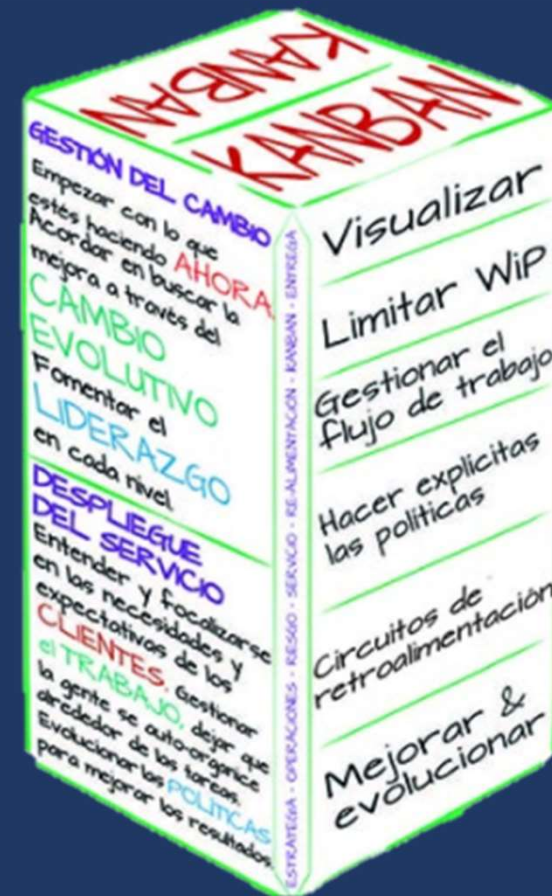 KANBAN
KANBAN
GESTIÓN DEL CAMBIO
Empezar con lo que
estés haciendo AHORA.
Acordar en buscar la
mejora a través del
CAMBIO
EVOLUTIVO
Fomentar el
LIDERAZGO
en cada nivel.
DESPLIEGUE
DEL SERVICIO
Entender y focalizarse
en las necesidades y
expectativas de los
CLIENTES. Gestionar
el TRABAJO, dejar que
la gente se auto-organice
alrededor de las tareas.
Evolucionar las POLÍTICAS
para mejorar los resultados.
ESTRATEGIA - OPERACIONES - RIESGO - SERVICIO - RE-ALIMENTACIÓN - KANBAN - ENTREGA
Visualizar
Limitar WiP
Gestionar el
flujo de trabajo
Hacer explícitas
las políticas
Circuitos de
retroalimentación
Mejorar &
evolucionar